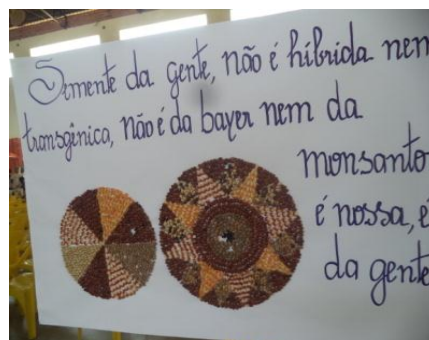 Semente da gente, não é híbrida nem
transgênica, não é da bayer nem da
monsanto
é nossa, é
da gente